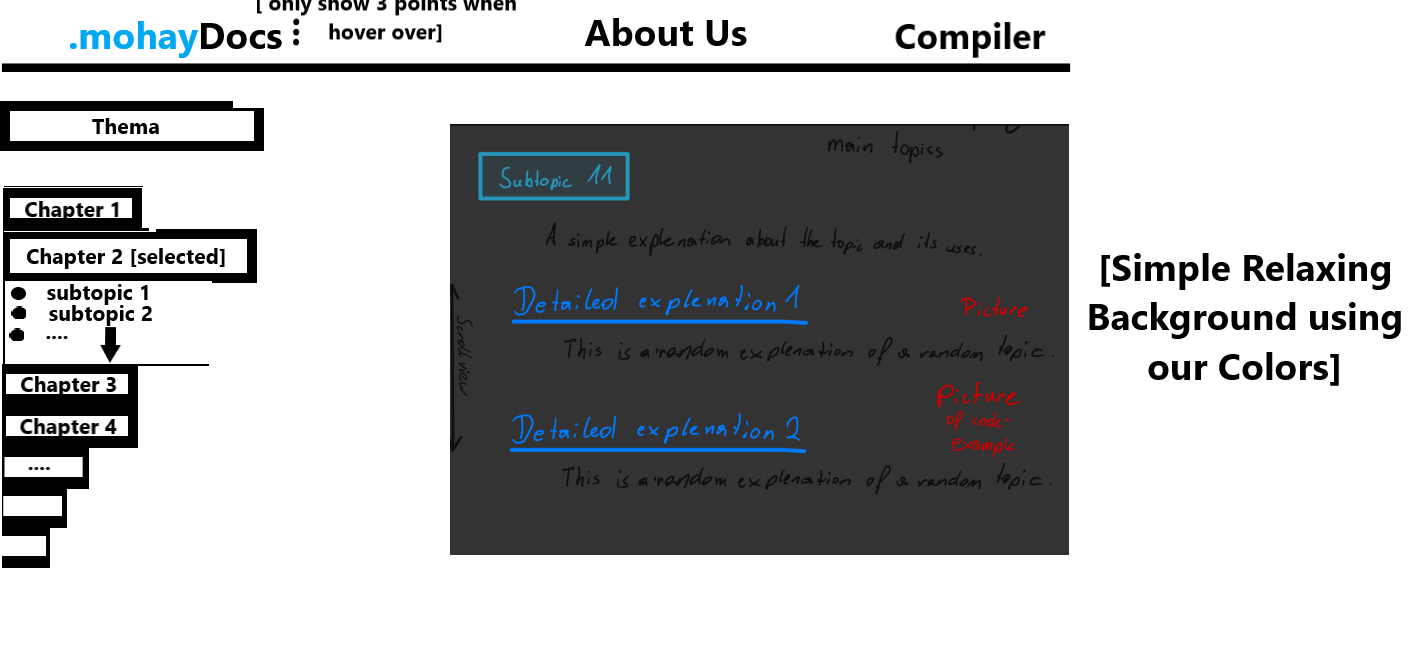 [ only show 3 points when
hover over]
.mohayDocs
About Us
Compiler
Thema
Chapter 1
Chapter 2 [selected]
subtopic 1
subtopic 2
....
Chapter 3
Chapter 4
....
main topics
Subtopic 11
A simple explenation about the topic and its uses.
Detailed explenation 1
Picture
This is a random explenation of a random topic.
Scroll view
Detailed explenation 2
Picture
of code-
example
This is a random explenation of a random topic.
[Simple Relaxing
Background using
our Colors]